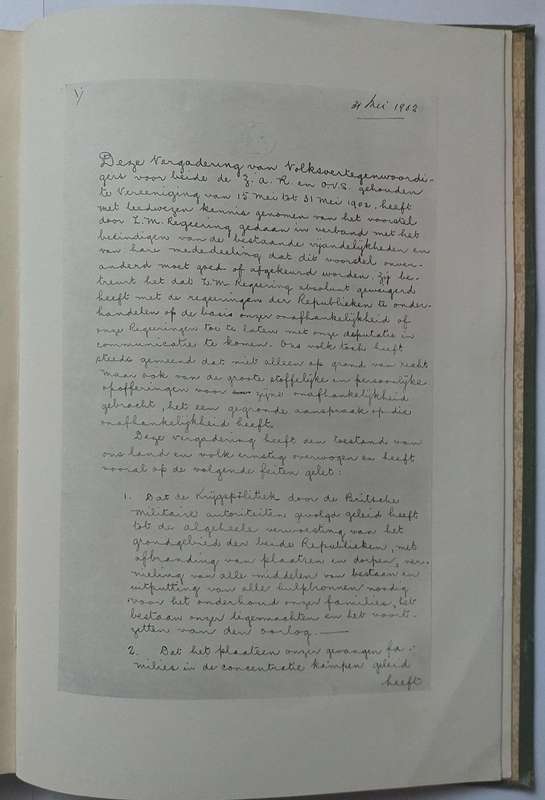 31 Mei 1902
Deze Vergadering van Volksvertegenwoordi-
gers voor beide de Z. A. R. en O.V.S. gehouden
te Vereeniging van 15 Mei tot 31 Mei 1902, heeft
met leedwezen kennis genomen van het voorstel
door Z. M. Regeering gedaan in verband met het
beëindigen van de bestaande vijandelijkheden en
van hare mededeeling dat dit voorstel onver-
anderd moet goed of afgekeurd worden. Zij be-
treurt het dat Z.M. Regeering absoluut geweigerd
heeft met de regeeringen der Republieken te onder-
handelen op de basis onzer onafhankelijkheid of
onze Regeeringen toe te laten met onze deputatie in
communicatie te komen. Ons volk toch heeft
steeds gemeend dat niet alleen op grond van recht
maar ook van de groote stoffelijke en persoonlijke
opofferingen voor zijne onafhankelijkheid
gebracht, het een gegronde aanspraak op die
onafhankelijkheid heeft.
Deze vergadering heeft den toestand van
ons land en volk ernstig overwogen en heeft
vooral op de volgende feiten gelet:
1. Dat de Krijgspolitiek door de Britsche
militaire autoriteiten gevolgd geleid heeft
tot de algeheele verwoesting van het
grondgebied der beide Republieken, met
afbranding van plaatsen en dorpen, ver-
nieling van alle middelen van bestaan en
uitputting van alle hulpbronnen noodig
voor het onderhoud onzer families, het
bestaan onzer legermachten en het voort-
zetten van den oorlog.
2. Dat het plaatsen onzer gevangen fa-
milies in de concentratie kampen geleid
heeft